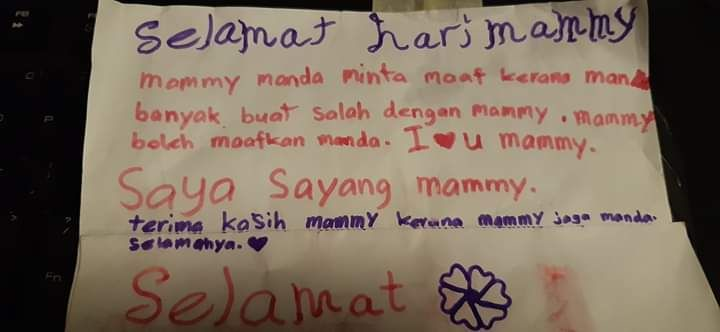 Selamat hari mammy
mammy manda minta maaf kerana manda
banyak buat salah dengan mammy. mammy
boleh maafkan manda. I ♥ u mammy.
Saya Sayang mammy.
terima kasih mammy kerana mammy jaga manda.
selamanya. ♥
Selamat
P
Fn